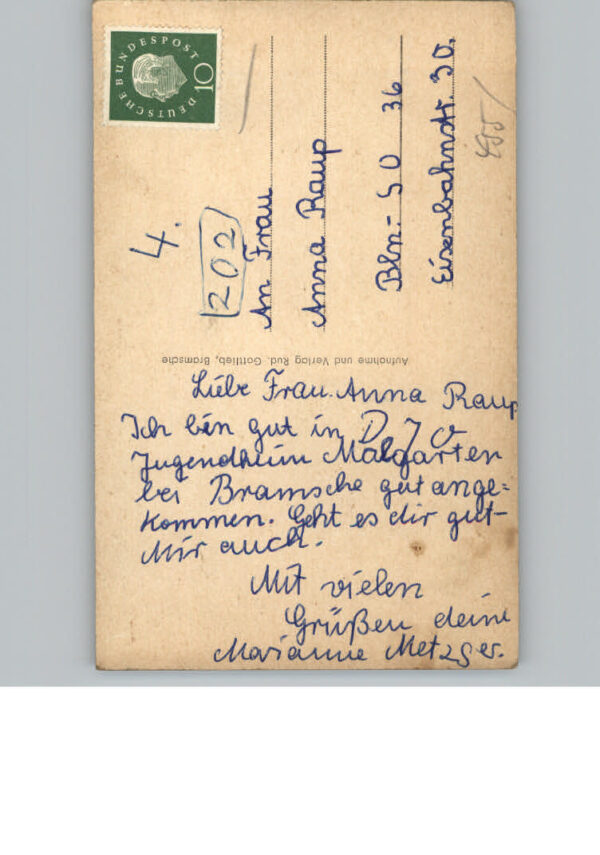 DEUTSCHE BUNDESPOST
10
4.
202
An Frau
Anna Raup
Bln.- SO 36
Eisenbahnstr. 30.
Aufnahme und Verlag Rud. Gottlieb, Bramsche
Liebe Frau. Anna Raup
Ich bin gut in D J O
Jugendheim Malgarten
bei Bramsche gut ange=
kommen. Geht es dir gut-
Mir auch.
Mit vielen
Grüßen deine
Marianne Metzger.